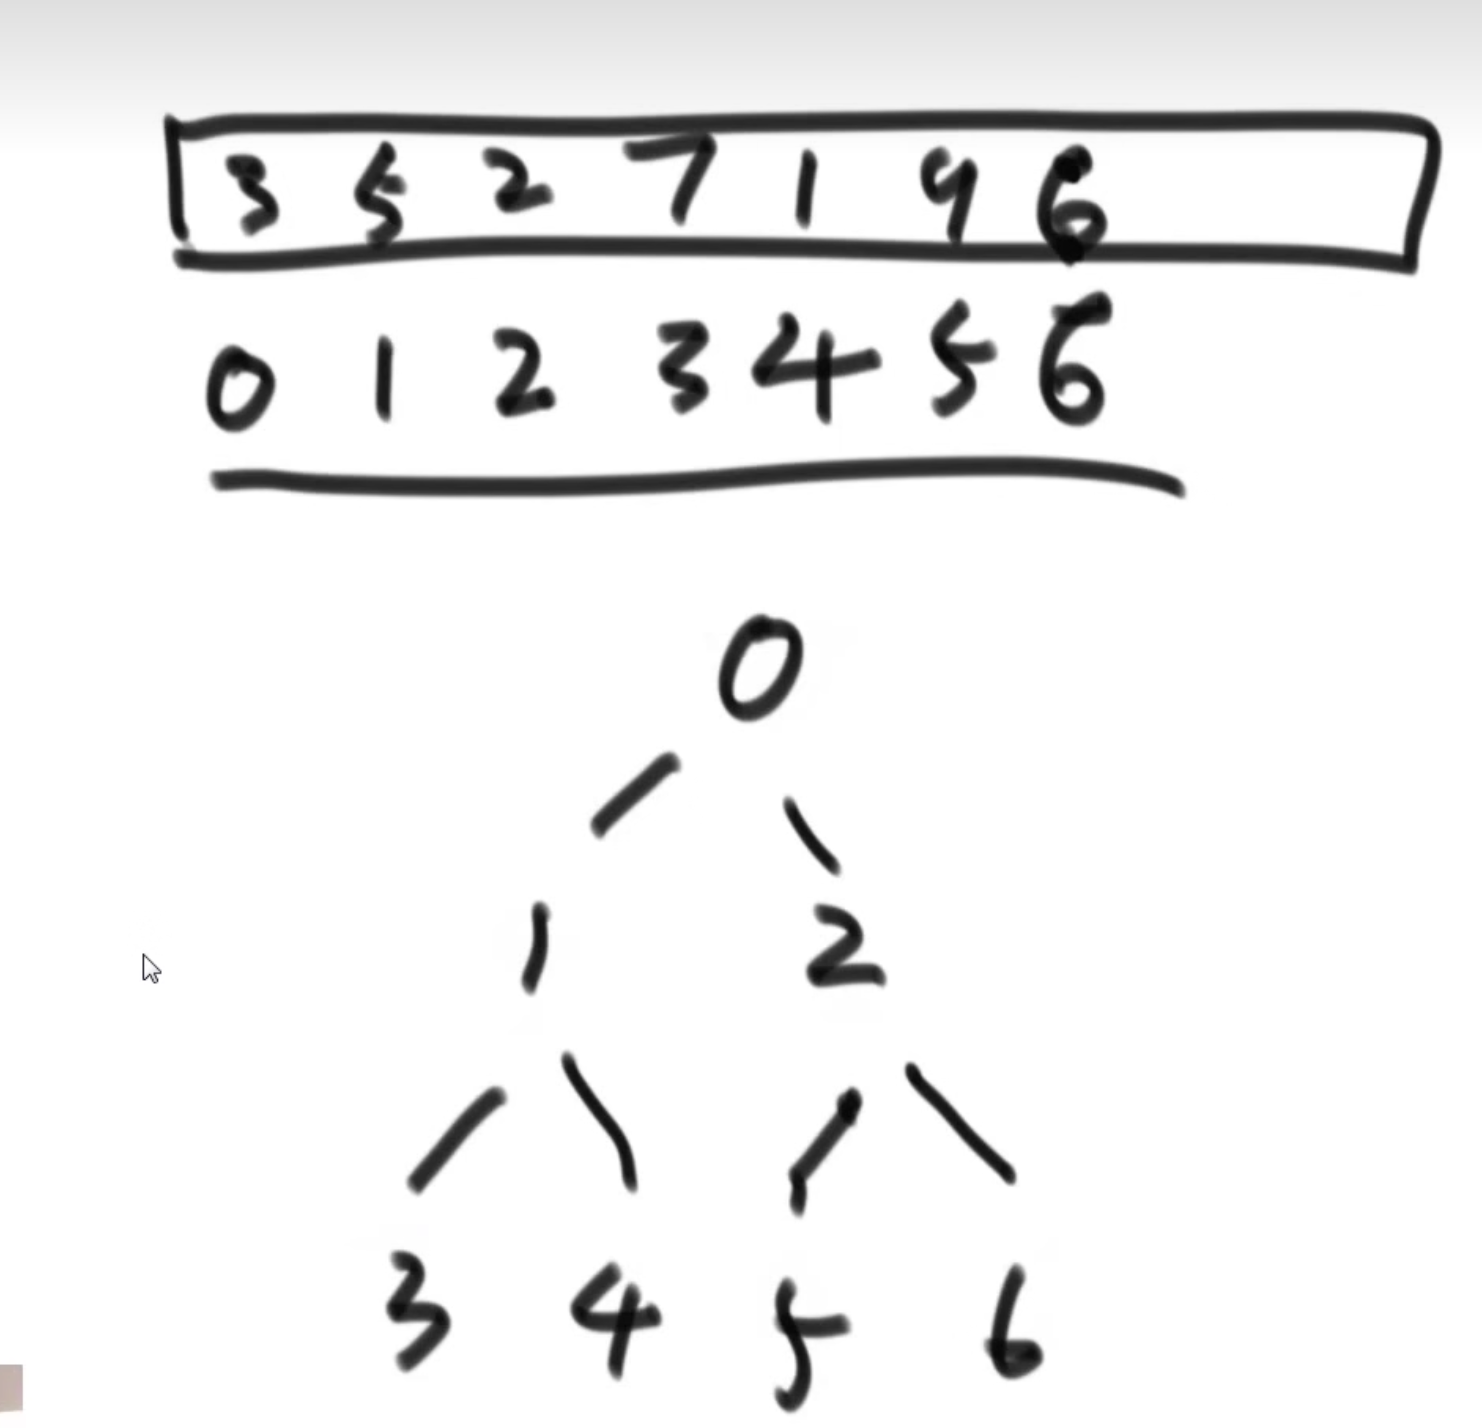 3 5 2 7 1 9 6
0 1 2 3 4 5 6
0
1 2
3 4 5 6